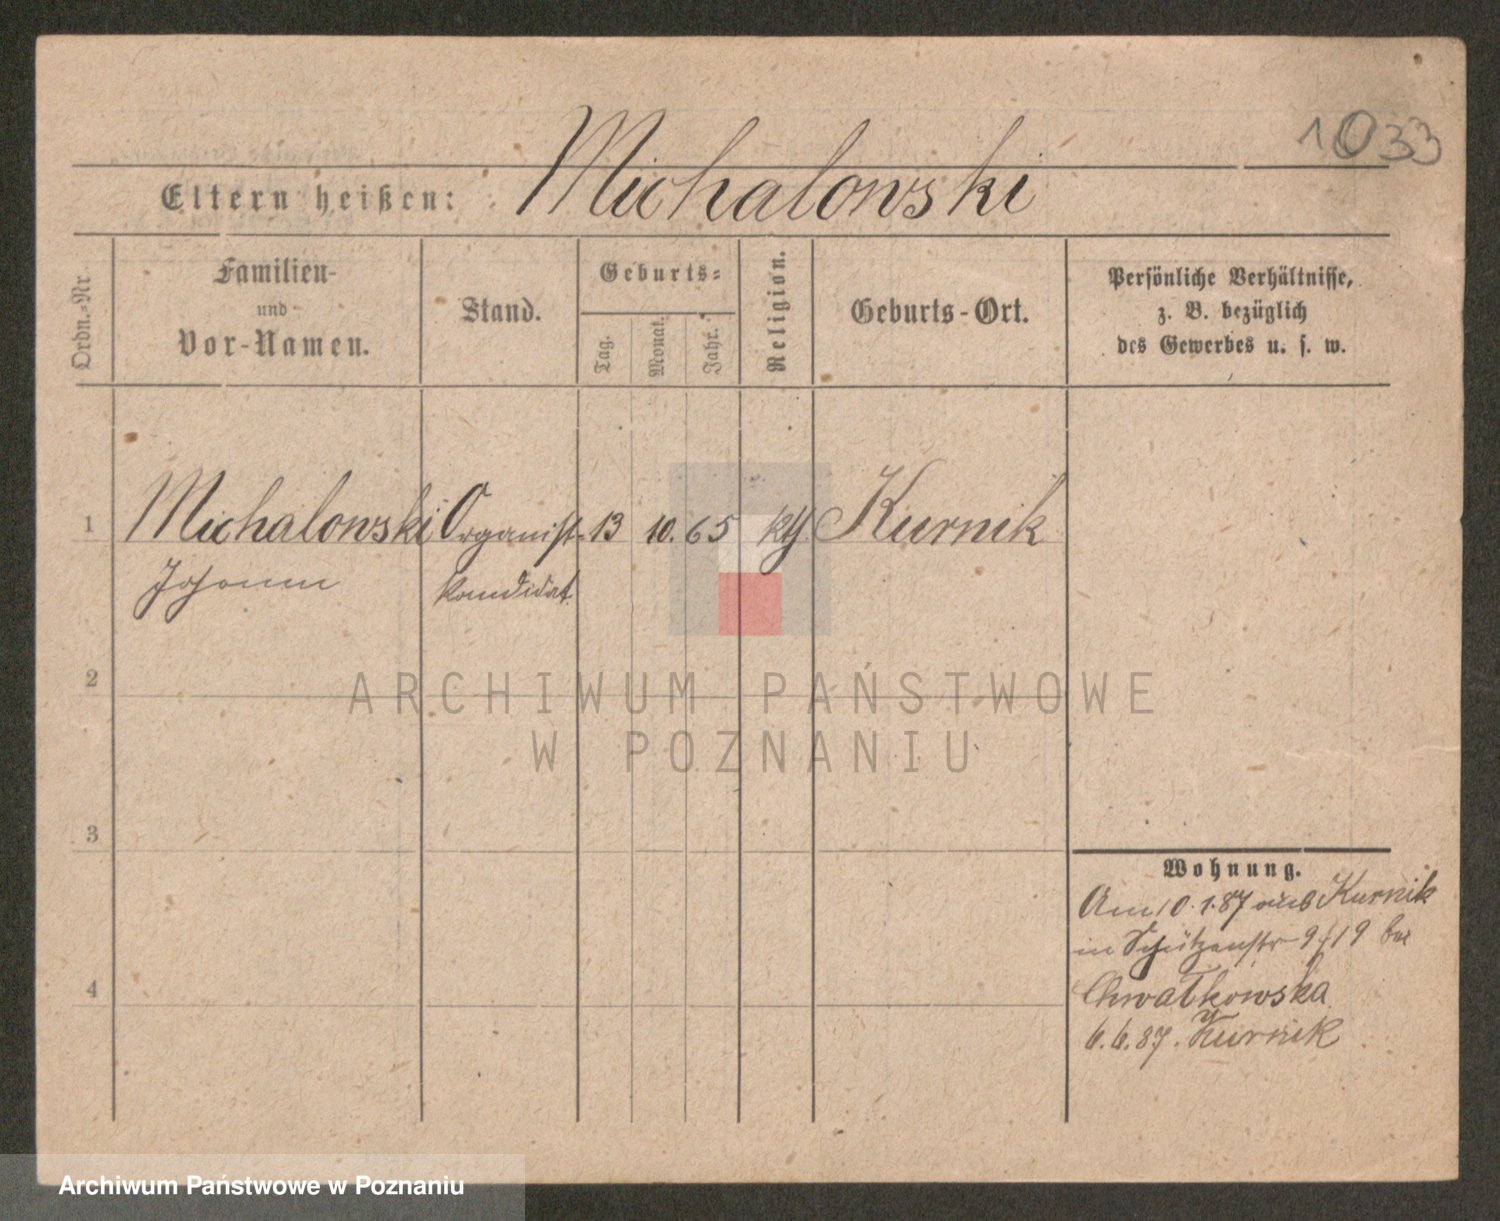 1033
Eltern heißen: Michalowski
Ordn.-Nr
Familien-
und
Vor-Namen.
Stand.
Geburts-
Tag.
Monat.
Jahr.
Religion.
Geburts-Ort.
Persönliche Verhältnisse,
z. B. bezüglich
des Gewerbes u. s. w.
1 Michalowski Organist- 13 10. 65 kth Kurnik
Johann kandidat
2
ARCHIWUM PAŃSTWOWE
W POZNANIU
3
Wohnung.
Am 10.1.87 aus Kurnik
in Schützenstr 9/19 bei
4
Chwałkowska
6.6.87. Kurnik
Archiwum Państwowe w Poznaniu